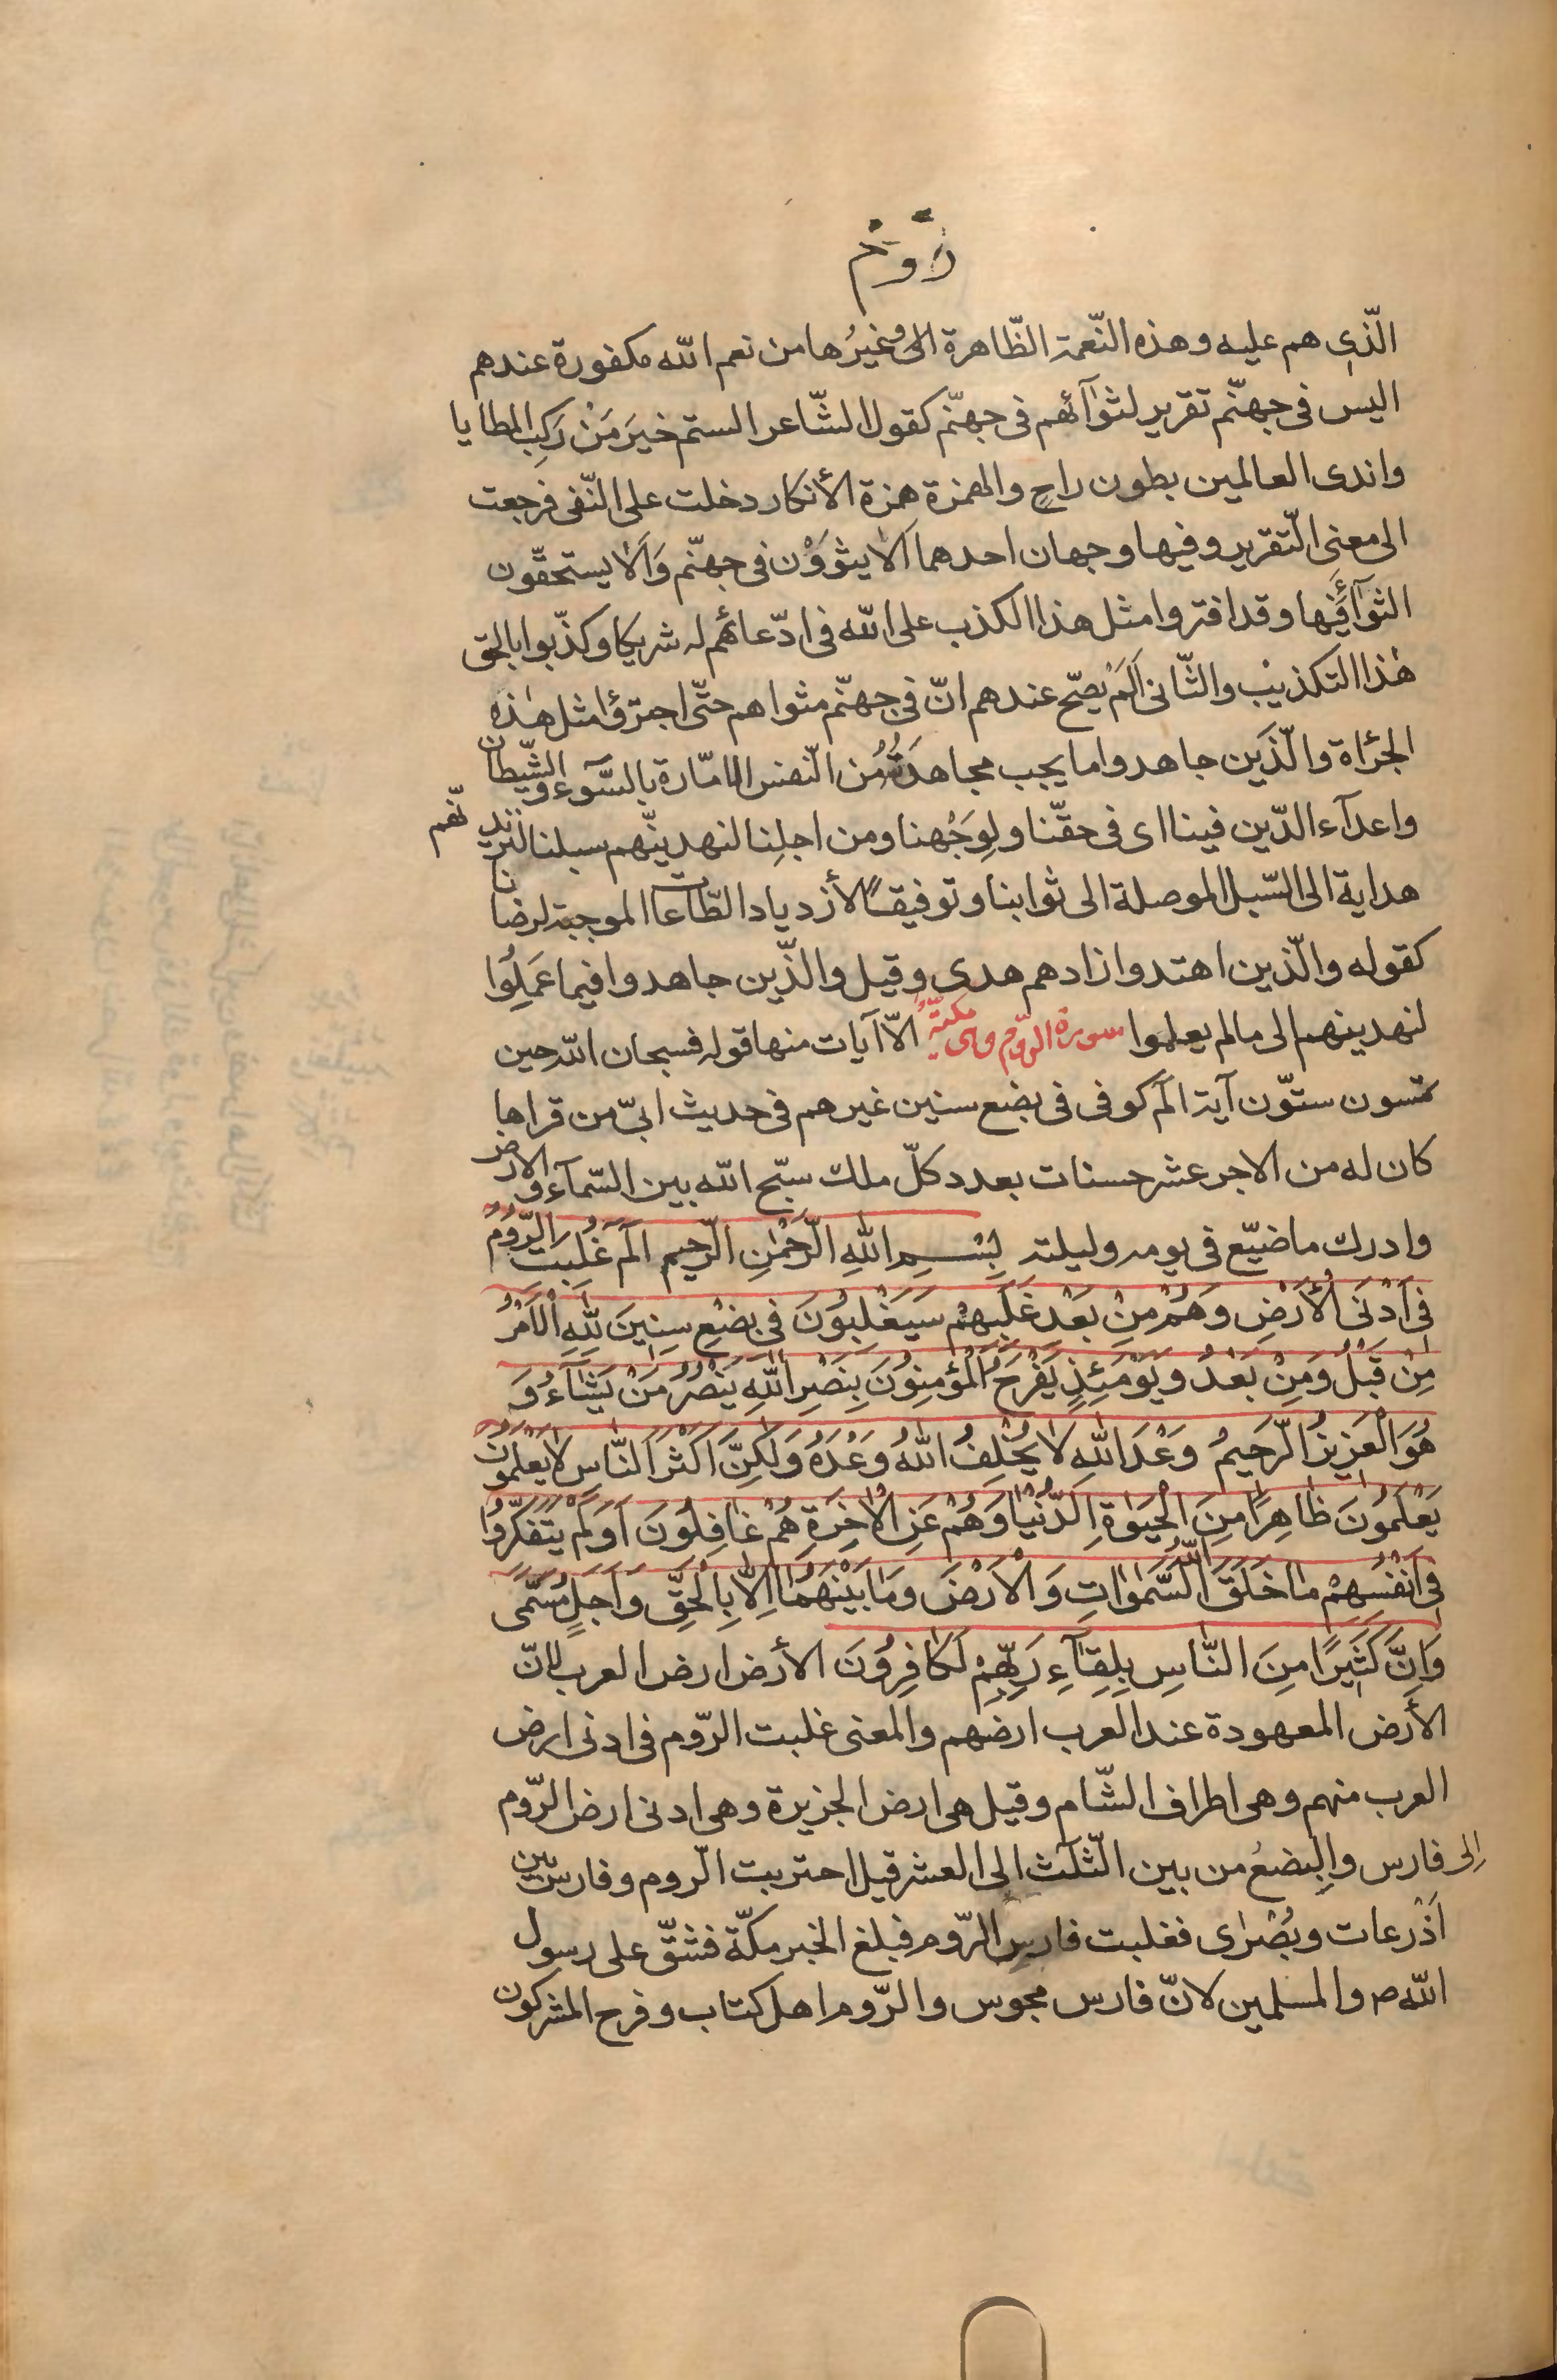 روم
الّذى هم عليه وهذه النّعمة الظّاهرة الى وغيرُها من نعم الله مكفورة عندهم
اليس فى جهنّم تقرير لثوآئهم فى جهنّم كقول الشّاعر الستم خيرَ مَنْ رَكِبَ المطايا
واندى العالمين بطون راحٍ والهمزة همزة الأنكار دخلت على النّفى فرجعت
الى معنى التّقرير وفيها وجهان احدهما اَلا يثوَوْن فى جهنّم وَاَلا يستحقّون
الثوآءَ فيها وقد افتروا مثل هذا الكذب على الله فى ادّعائهم له شريكا وكذّبوا بالحق
هٰذا التكذيب والثّانى اَلَمْ يصحّ عندهم انّ فى جهنّم مثواهم حتّى اجترؤا مثل هٰذه
الجرٔاة والّذين جاهدوا ما يجب مجاهدَتُهُ من النّفس الامّارة بالسّوء والشّيطان
واعدآء الدّين فينا اى فى حقّنا ولِوَجْهنا ومن اجلِنا لنهدينّهم سبلنا لنزيدنّهم
هداية الى السّبل الموصلة الى ثوابنا وتوفيقًا لأزدياد الطّاعات الموجبة لرضانا
كقوله والّذين اهتدوا زادهم هدى وقيل والّذين جاهدوا فيما عَمِلُوا
لنهدينهم الى مالم يعلموا سورة الرّوم وهى مكّيّة الاّ آيات منها قوله فسبحان الله حين
تمسون ستّون آية الم كوفى فى بضع سنين غيرهم فى حديث ابىّ من قراها
كان له من الاجر عشر حسنات بعدد كلّ ملك سبّح الله بين السّمآء والارض
وادرك ما ضيّع فى يومه وليلته بِسْمِ اللهِ الرَّحْمٰنِ الرَّحِيمِ الٓمٓ غُلِبَتِ الرُّومُ
فِى اَدْنَى الْأَرْضِ وَهُمْ مِنْ بَعْدِ غَلَبِهِمْ سَيَغْلِبُونَ فِى بِضْعِ سِنِينَ لِلّٰهِ الْاَمْرُ
مِنْ قَبْلُ وَمِنْ بَعْدُ وَيَوْمَئِذٍ يَفْرَحُ الْمُؤْمِنُونَ بِنَصْرِ اللهِ يَنْصُرُ مَنْ يَشَآءُ وَ
هُوَ الْعَزِيزُ الرَّحِيمُ وَعْدَ اللهِ لَا يُخْلِفُ اللهُ وَعْدَهُ وَلٰكِنَّ اَكْثَرَ النَّاسِ لَا يَعْلَمُونَ
يَعْلَمُونَ ظَاهِرًا مِنَ الْحَيٰوةِ الدُّنْيَا وَهُمْ عَنِ الْاٰخِرَةِ هُمْ غَافِلُونَ اَوَلَمْ يَتَفَكَّرُوا
فِى اَنْفُسِهِمْ مَا خَلَقَ اللّٰهُ السَّمٰوَاتِ وَالْاَرْضَ وَمَا بَيْنَهُمَا اِلَّا بِالْحَقِّ وَاَجَلٍ مُسَمًّى
وَاِنَّ كَثِيرًا مِنَ النَّاسِ بِلِقَآءِ رَبِّهِمْ لَكَافِرُونَ الأرض ارض العرب لانّ
الأرض المعهودة عند العرب ارضهم والمعنى غلبت الرّوم فى ادنى ارض
العرب منهم وهى اطراف الشّام وقيل هى ارض الجزيرة وهى ادنى ارض الرّوم
اِلى فارس والبِضعُ من بين الثّلث الى العشر قيل احتربت الرّوم وفارس بين
اَذْرعات وبُصْرٰى فغلبت فارس الرّوم فبلغ الخبر مكّة فشقّ على رسول
الله ص والمسلمين لانّ فارس مجوس والرّوم اهل كتاب وفرح المشركون